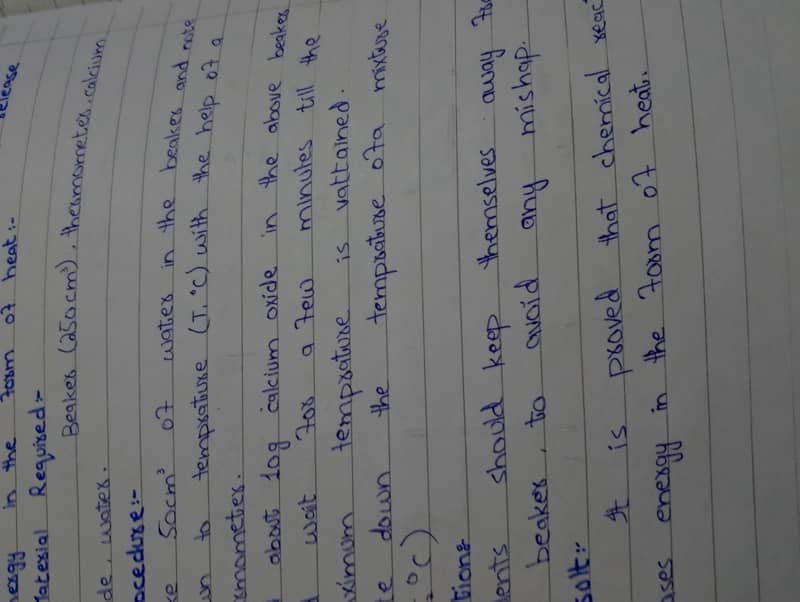 release
energy in the form of heat :-
Material Required :-
Beaker (250cm³), thermometer, calcium
de, water.
ocedure :-
ke 50cm³ of water in the beaker and note
wn to temprature (T, °C) with the help of a
rmometer.
about 10g calcium oxide in the above beaker
wait for a few minutes till the
ximum temprature is vattained.
te down the temprature of a mixture
°C)
tions
dents should keep themselves away
beaker, to avoid any mishap.
sult :-
It is proved that chemical reac
ases energy in the form of heat.